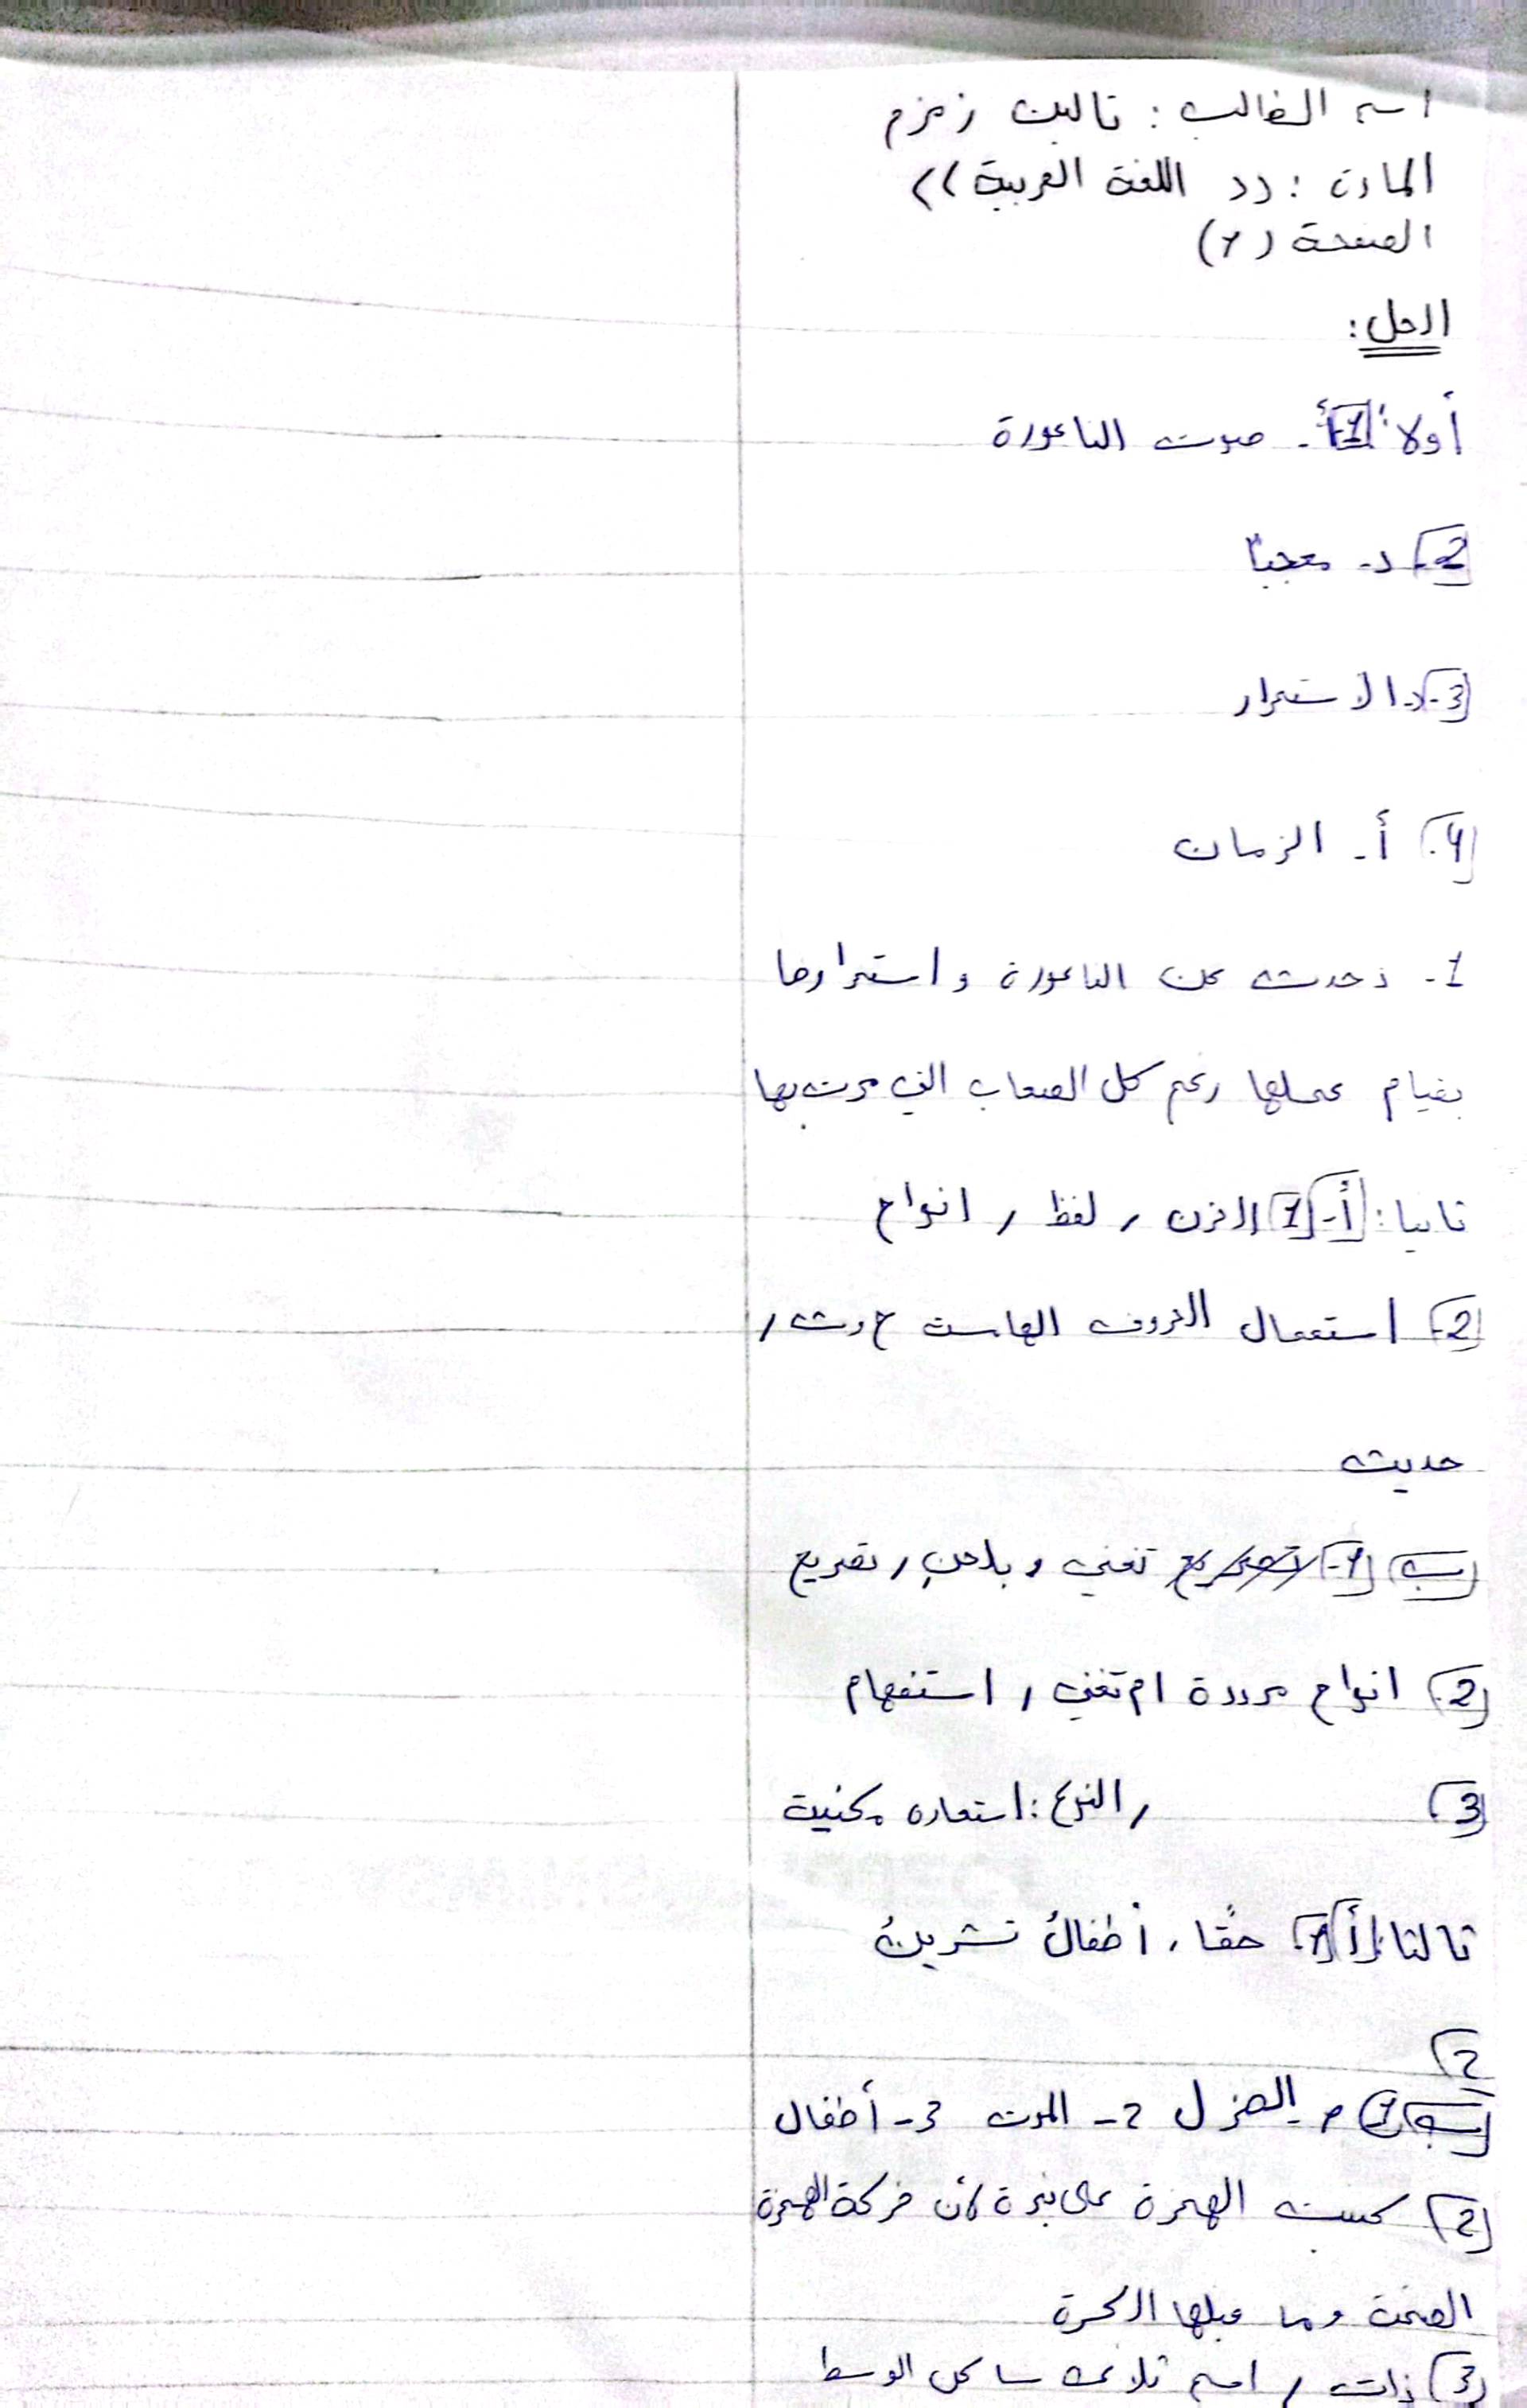 اسم الطالب : تالين زمزم
المادة : (( اللغة العربية ))
الصفحة (1)
الحل :
أولا : 1- أ- صوت الناعورة
2- د- معجبا
3- د- الاستمرار
4- أ- الزمان
1- تحدث عن الناعورة واستمرارها
بقيام عملها رغم كل الصعاب التي مرت بها
ثانيا : أ- 1- الحزن , لفظ , انواح
2- استعمال الحروف الهامسة ح وث ,
حديث
ب 1- تغني و بلاحن , تصريع
2- انواح مرددة ام تغني , استفهام
3- , النوع : استعارة مكنية
ثالثا : أ 1- حقًا , أطفالُ تشرينَ
2
ب 1 الهزل 2- الموت 3- أطفال
2- كتبت الهمزة على نبرة لأن حركة الهمزة
الضمة وما قبلها الكسرة
3- ذات , اسم ثلاثي ساكن الوسط